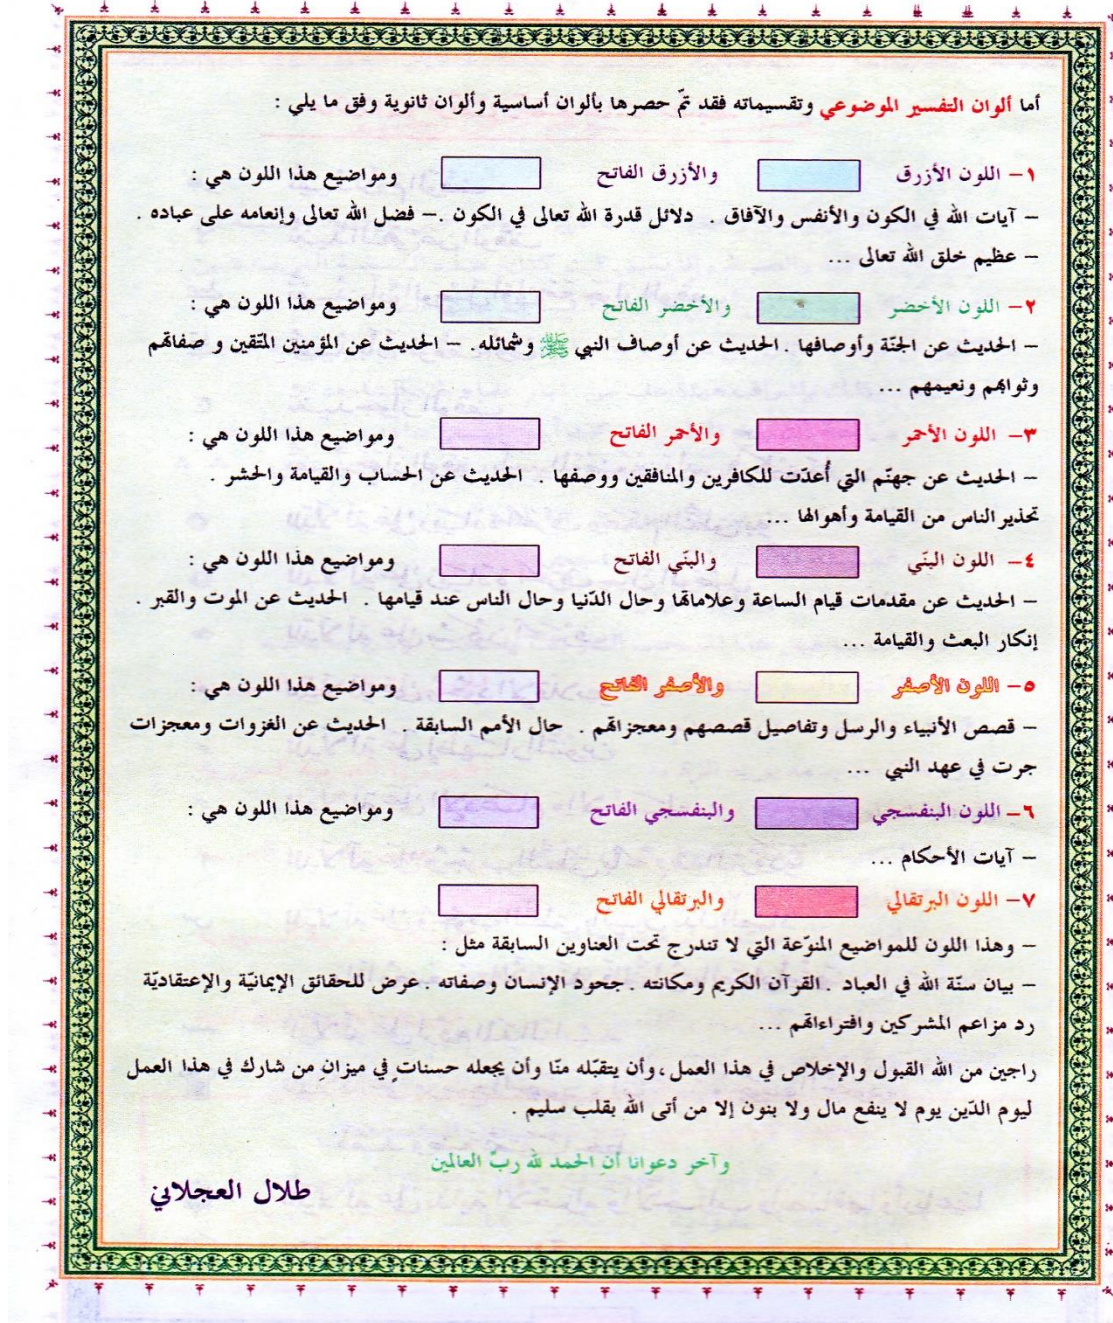 أما ألوان التفسير الموضوعي وتقسيماته فقد تمّ حصرها بألوان أساسية وألوان ثانوية وفق ما يلي :
١- اللون الأزرق والأزرق الفاتح ومواضيع هذا اللون هي :
– آيات الله في الكون والأنفس والآفاق . دلائل قدرة الله تعالى في الكون .– فضل الله تعالى وإنعامه على عباده .
– عظيم خلق الله تعالى ...
٢- اللون الأخضر والأخضر الفاتح ومواضيع هذا اللون هي :
– الحديث عن الجنّة وأوصافها . الحديث عن أوصاف النبي ﷺ وشمائله. – الحديث عن المؤمنين المتّقين و صفاتهم
وثوابهم ونعيمهم ...
٣- اللون الأحمر والأحمر الفاتح ومواضيع هذا اللون هي :
– الحديث عن جهنّم التي أُعدّت للكافرين والمنافقين ووصفها . الحديث عن الحساب والقيامة والحشر .
تحذير الناس من القيامة وأهوالها ...
٤- اللون البنّي والبنّي الفاتح ومواضيع هذا اللون هي :
– الحديث عن مقدمات قيام الساعة وعلاماتها وحال الدّنيا وحال الناس عند قيامها . الحديث عن الموت والقبر .
إنكار البعث والقيامة ...
٥- اللون الأصفر والأصفر الفاتح ومواضيع هذا اللون هي :
– قصص الأنبياء والرسل وتفاصيل قصصهم ومعجزاتهم . حال الأمم السابقة . الحديث عن الغزوات ومعجزات
جرت في عهد النبي ...
٦- اللون البنفسجي والبنفسجي الفاتح ومواضيع هذا اللون هي :
– آيات الأحكام ...
٧- اللون البرتقالي والبرتقالي الفاتح
– وهذا اللون للمواضيع المنوّعة التي لا تندرج تحت العناوين السابقة مثل :
– بيان سنّة الله في العباد . القرآن الكريم ومكانته . جحود الإنسان وصفاته . عرض للحقائق الإيمانيّة والإعتقاديّة
رد مزاعم المشركين وافتراءاتهم ...
راجين من الله القبول والإخلاص في هذا العمل ،وأن يتقبّله منّا وأن يجعله حسناتٍ في ميزانِ من شارك في هذا العمل
ليوم الدّين يوم لا ينفع مال ولا بنون إلا من أتى الله بقلب سليم .
وآخر دعوانا أن الحمد لله ربّ العالمين
طلال العجلاني